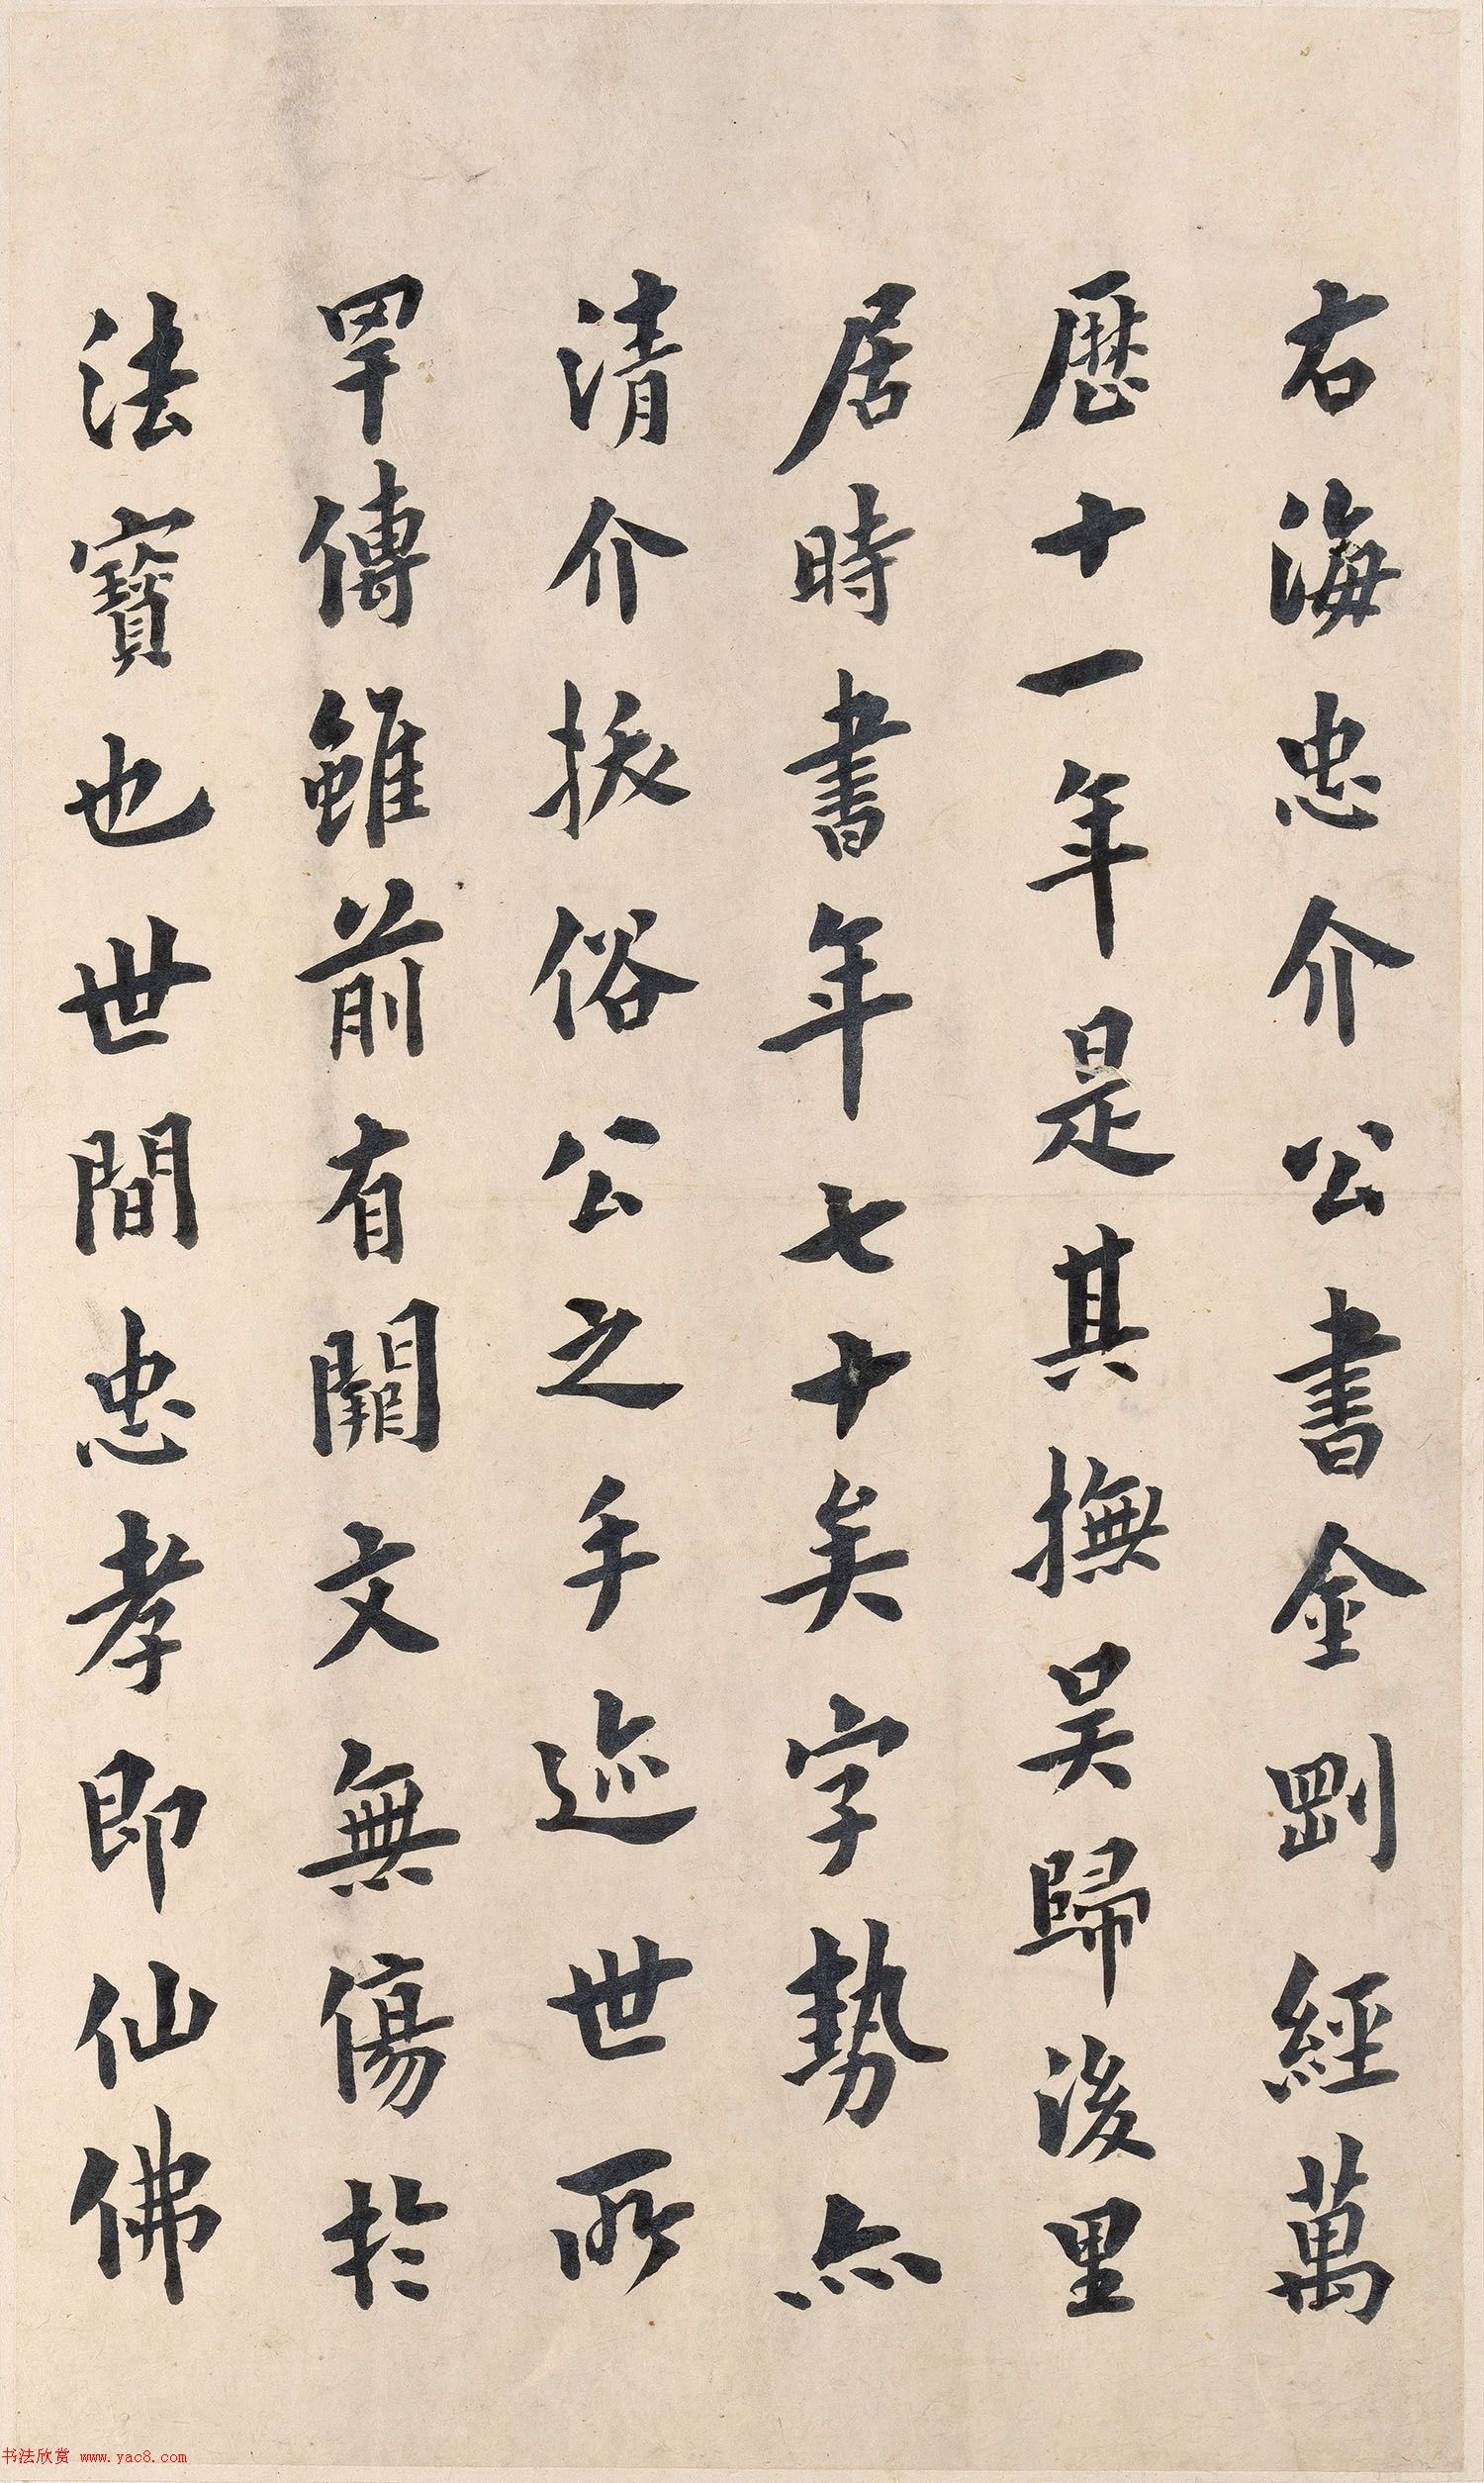 右海忠介公書金剛經萬
歷十一年是其撫吴歸後里
居時書年七十矣字勢亦
清介拔俗公之手迹世所
罕傳雖前有闕文無傷於
法寶也世間忠孝即仙佛
书法欣赏 www.yac8.com